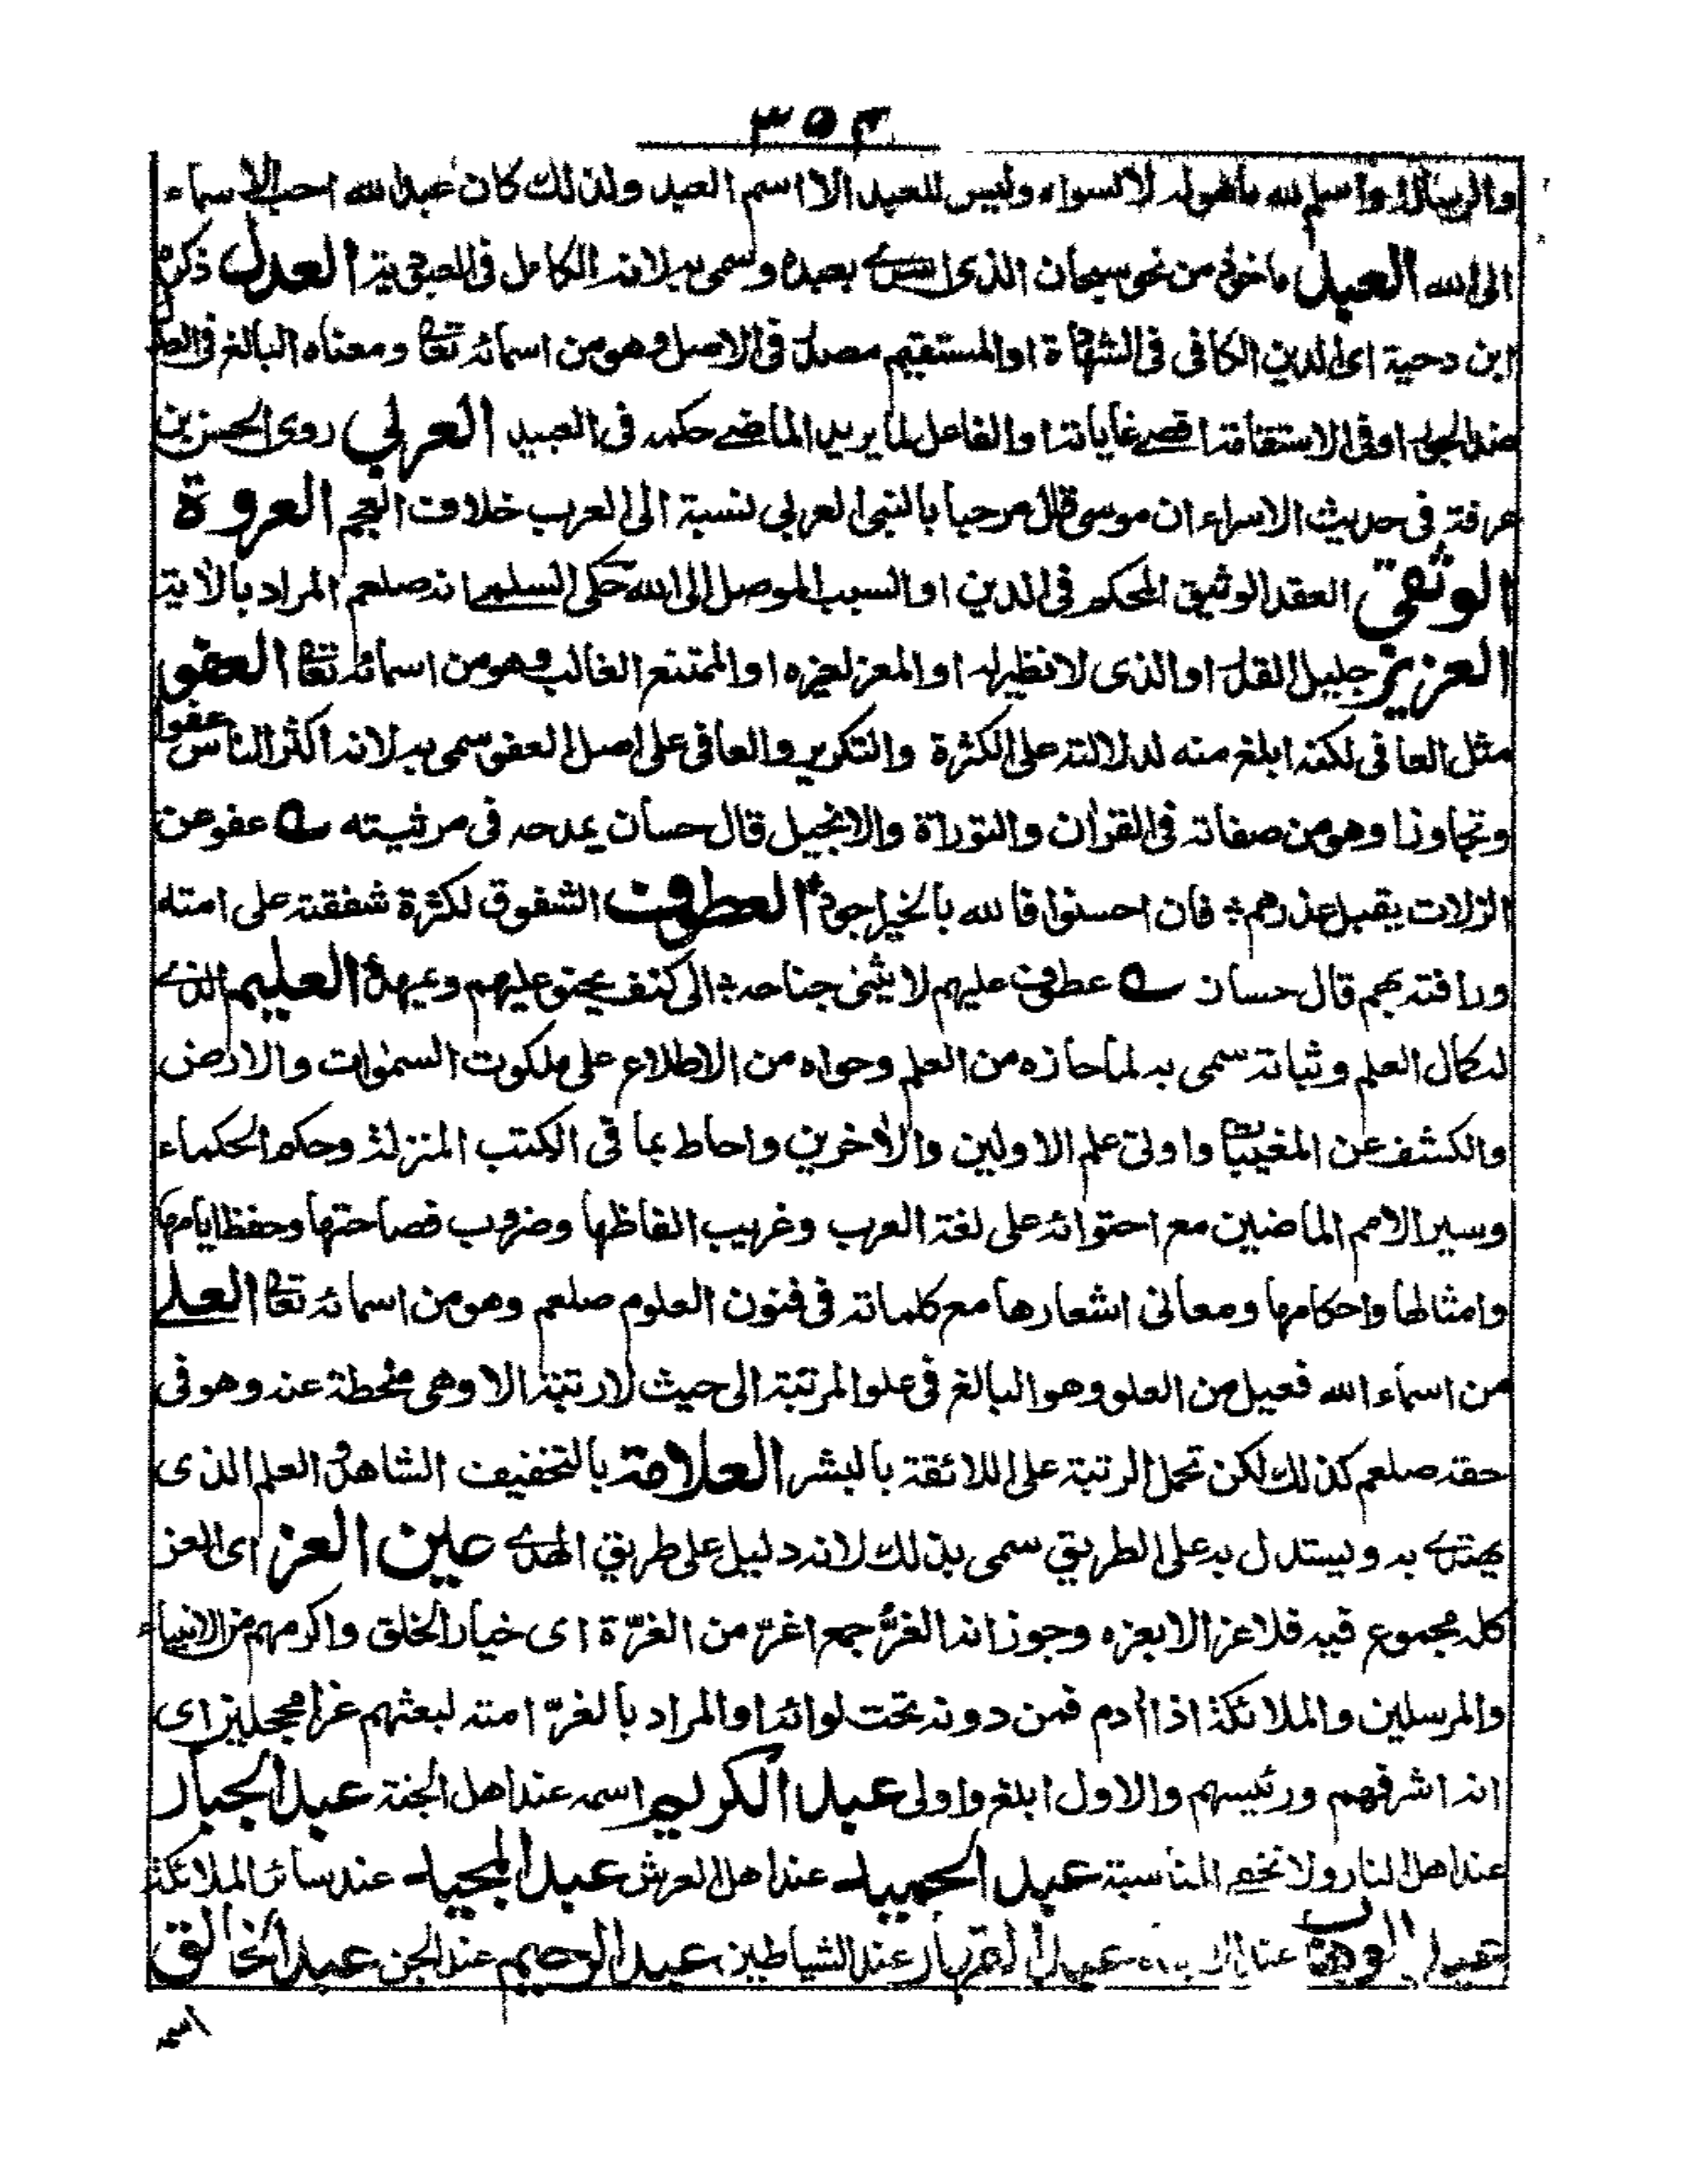 ٣٥٣
والرسالة واسلم لله ما هوله لا لسواه وليس للعبد الا اسم العبد ولذلك كان عبدالله احب الاسماء
الى الله العبد ماخوذ من نحو سبحان الذى اسرى بعبده وسمى به لانه الكامل فى العبودية العدل ذكره
ابن دحية اى الدين الكافى فى الشهادة او المستقيم مصدر فى الاصل وهو من اسمائه تعالى ومعناه البالغ فى
ضد الجور او فى الاستقامة اقصى غاياتها والفاعل لما يريد الماضى حكمه فى العبيد العربي روى الحسن بن
عرفة فى حديث الاسراء ان موسى قال مرحبا بالنبى العربي نسبة الى العرب خلاف العجم العروة
الوثقى العقد الوثيق المحكم فى الدين او السبب الموصل الى الله حكى السلمى انه صلعم المراد بالآية
العزيز جليل القدر او الذى لا نظير له او المعز لغيره او الممتنع الغالب وهو من اسمائه تعالى العفو
مثل العافى لكنه ابلغ منه لدلالته على الكثرة والتكرير والعافى على اصل العفو سمى به لانه اكثر الناس عفوا
وتجاوزا وهو من صفاته فى القرآن والتوراة والانجيل قال حسان يمدحه فى مرثيته عفو عن
الزلات يقبل عذرهم فان احسنوا فالله بالخير اجود العطوف الشفوق لكثرة شفقته على امته
ورافته بهم قال حسان عطوف عليهم لا يثنى جناحه الى كنف يحنو عليهم ويمهد العليم الذى
له كمال العلم وثباته سمى به لما حازه من العلم وحواه من الاطلاع على ملكوت السموات والارض
والكشف عن المغيبات واوتى علم الاولين والآخرين واحاط بما فى الكتب المنزلة وحكم الحكماء
وسير الامم الماضين مع احتوائه على لغة العرب وغريب الفاظها وضروب فصاحتها وحفظ ايامها
وامثالها واحكامها ومعانى اشعارها مع كلماته فى فنون العلوم صلعم وهو من اسمائه تعالى العلى
من اسماء الله فعيل من العلو وهو البالغ فى علو المرتبة الى حيث لا رتبة الا وهى منحطة عنه وهو فى
حقه صلعم كذلك لكن تحمل الرتبة على اللائقة بالبشر العلامة بالتخفيف الشاهد والعلم الذى
يهتدى به ويستدل به على الطريق سمى بذلك لانه دليل على طريق الهدى عين العز اى العز
كله مجموع فيه فلا عز الا بعزه وجوز انه الغر جمع اغر من الغرة اى خيار الخلق واكرمهم من الانبياء
والمرسلين والملائكة اذ آدم فمن دونه تحت لوائه او المراد بالغر امته لبعثهم غرا محجلين اى
انه اشرفهم ورئيسهم والاول ابلغ واولى عبد الكريم اسمه عند اهل الجنة عبد الجبار
عند اهل النار ولا تخفى المناسبة عبد الحميد عند اهل العرش عبد المجيد عند سائر الملائكة
عبد الوهاب عند الانبياء عبد القهار عند الشياطين عبد الرحيم عند الجن عبد الخالق
اسمه